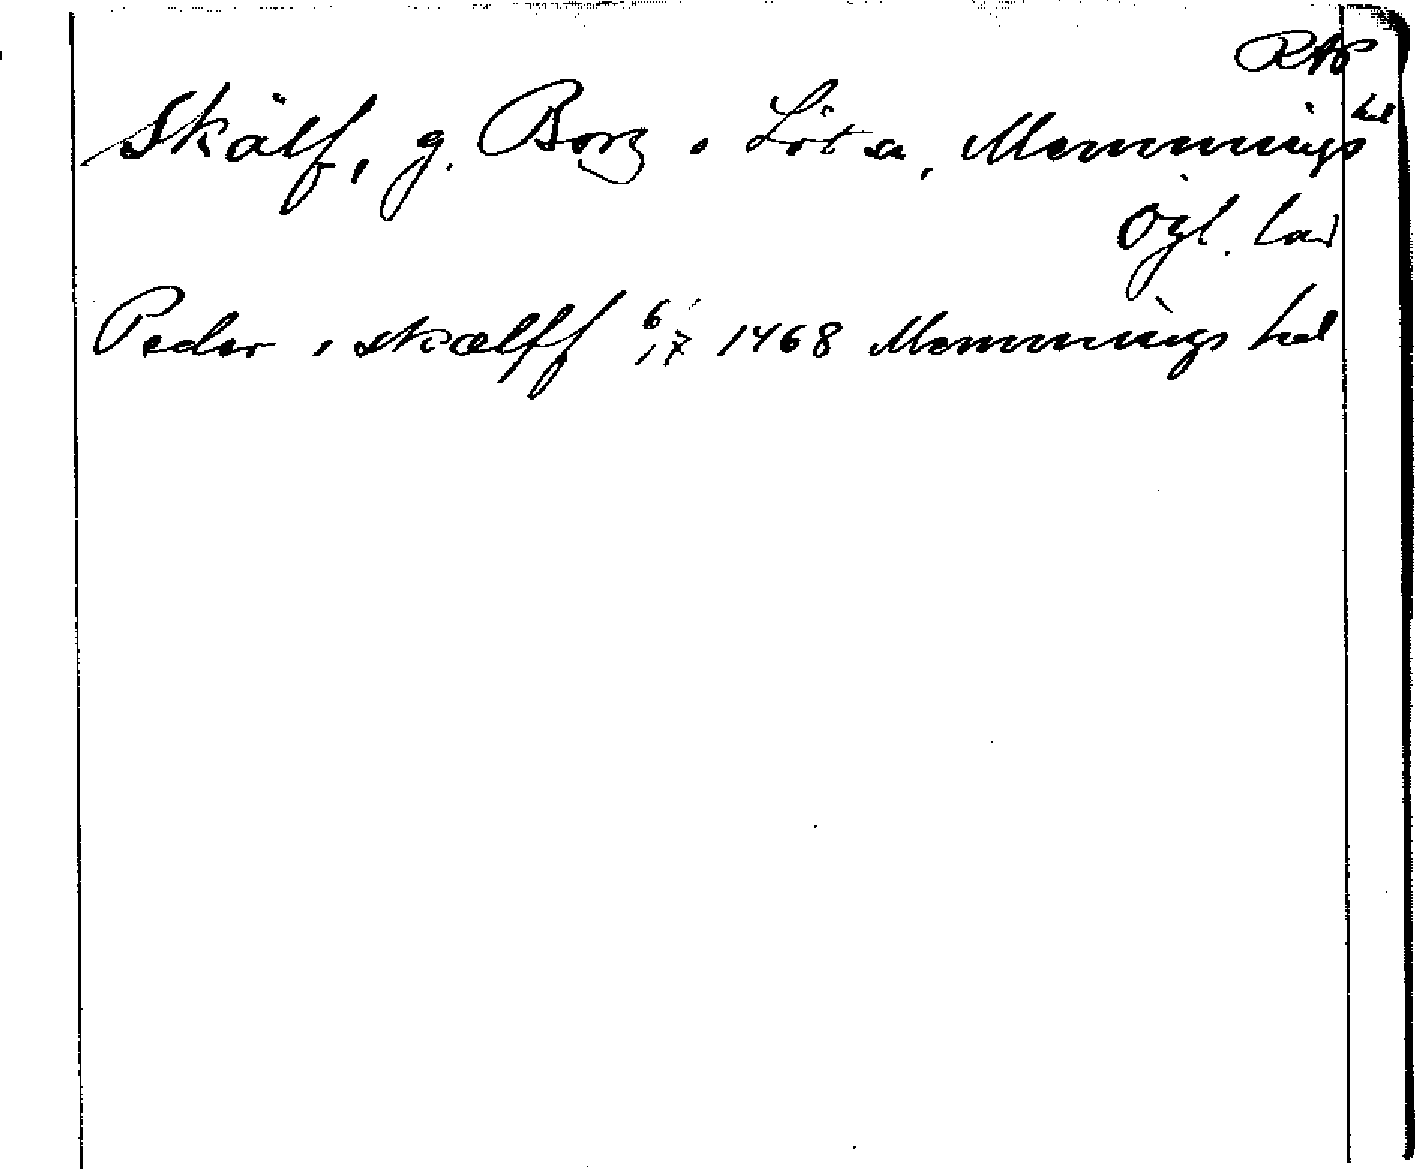 RAP
Skälf, g. Borg o Löt sn, Memmings hd
Ögl. län
Peder i skælff 6/7 1468 Memmings hd